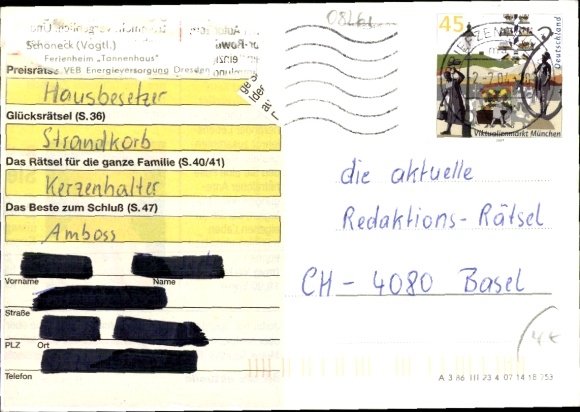 Schöneck (Vogtl.)
Ferienheim „Tannenhaus"
VEB Energieversorgung Dresden
Preisrätse
Hausbesetzer
Glücksrätsel (S.36)
Strandkorb
Das Rätsel für die ganze Familie (S.40/41)
Kerzenhalter
Das Beste zum Schluß (S.47)
Amboss
Vorname Name
Straße
PLZ Ort
Telefon
19780
45
Deutschland
Viktualienmarkt München
die aktuelle
Redaktions-Rätsel
CH - 4080 Basel
4€
A 3 86 III 23 4 07 14 18 753